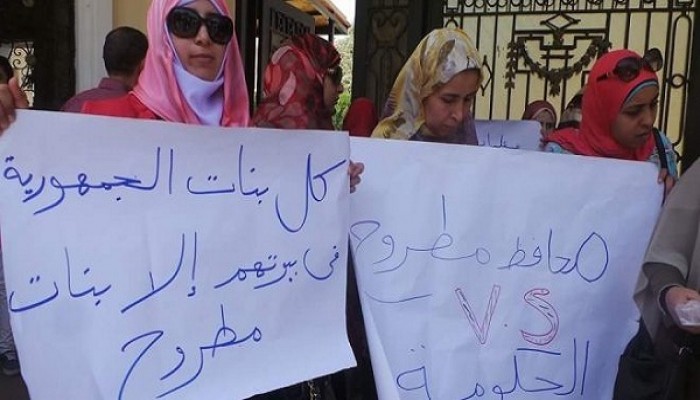 كل بنات الجمهورية
فى بيتهم إلا بنات
مطروح
محافظ مطروح
V.S
الحكومة